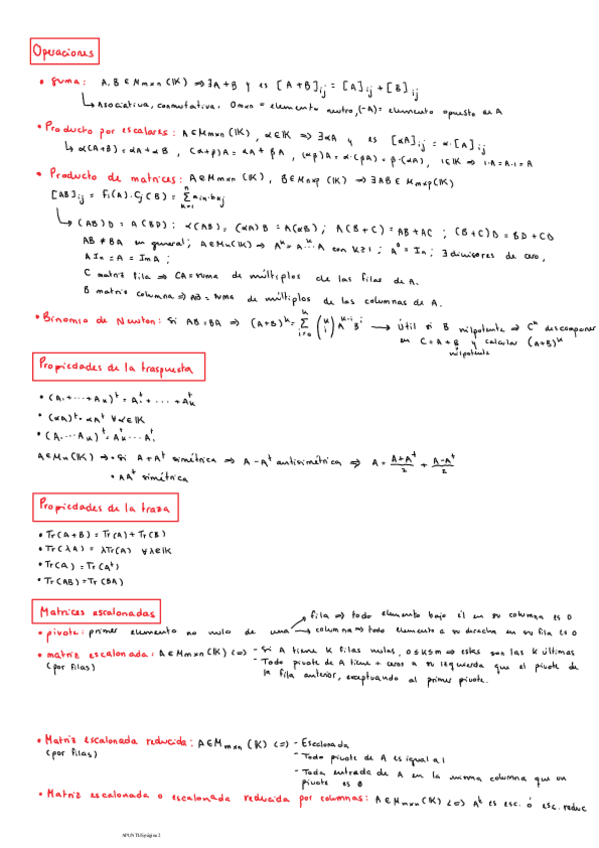 Operaciones
• Suma: A, B ∈ Mmxn (IK) ⇒ ∃ A+B y es [A+B]ij = [A]ij + [B]ij
↳ Asociativa, conmutativa. Omxn = elemento neutro, (-A) = elemento opuesto de A
• Producto por escalares: A ∈ Mmxn (IK), α ∈ IK ⇒ ∃ αA y es [αA]ij = α·[A]ij
↳ α(A+B) = αA + αB, (α+β)A = αA + βA, (αβ)A = α·(βA) = β·(αA), 1∈IK ⇒ 1·A = A·1 = A
• Producto de matrices: A∈Mmxn (IK), B∈Mnxp (IK) ⇒ ∃ AB ∈ Mmxp(IK)
[AB]ij = Fi(A)·Cj(B) = Σ aik·bkj
↳ (AB)D = A(BD); α(AB) = (αA)B = A(αB); A(B+C) = AB+AC; (B+C)D = BD+CD
AB ≠ BA en general; A∈Mn(IK) ⇒ A^k = A...A con k≥1; A^0 = In; ∃ divisores de cero,
A In = A = Im A;
C matriz fila ⇒ CA = suma de múltiplos de las filas de A.
B matriz columna ⇒ AB = suma de múltiplos de las columnas de A.
• Binomio de Newton: Si AB=BA ⇒ (A+B)^k = Σ (k i) A^k-i B^i → Útil si B nilpotente ⇒ C^k descomponer
en C = A+B y calcular (A+B)^k
nilpotente
Propiedades de la traspuesta
• (A1+...+Ak)^t = A1^t + ... + Ak^t
• (αA)^t = αA^t ∀α∈IK
• (A1...Ak)^t = Ak^t ... A1^t
A∈Mn(IK) ⇒ • Si A+A^t simétrica ⇒ A-A^t antisimétrica ⇒ A = A+A^t/2 + A-A^t/2
• AA^t simétrica
Propiedades de la traza
• Tr(A+B) = Tr(A) + Tr(B)
• Tr(λA) = λTr(A) ∀λ∈IK
• Tr(A) = Tr(A^t)
• Tr(AB) = Tr(BA)
Matrices escalonadas
fila ⇒ todo elemento bajo él en su columna es 0
• pivote: primer elemento no nulo de una
columna ⇒ todo elemento a su derecha en su fila es 0
• matriz escalonada: A∈Mmxn(IK) ⇔ - Si A tiene K filas nulas, 0≤K≤m ⇒ estas son las K últimas
(por filas) - Todo pivote de A tiene + ceros a su izquierda que el pivote de
la fila anterior, exceptuando al primer pivote.
• Matriz escalonada reducida: A∈Mmxn (IK) ⇔ - Escalonada
(por filas) - Todo pivote de A es igual a 1
- Toda entrada de A en la misma columna que un
pivote es 0
• Matriz escalonada o escalonada reducida por columnas: A∈Mmxn(IK) ⇔ A^t es esc. ó esc. reduc
APUNTES página 2